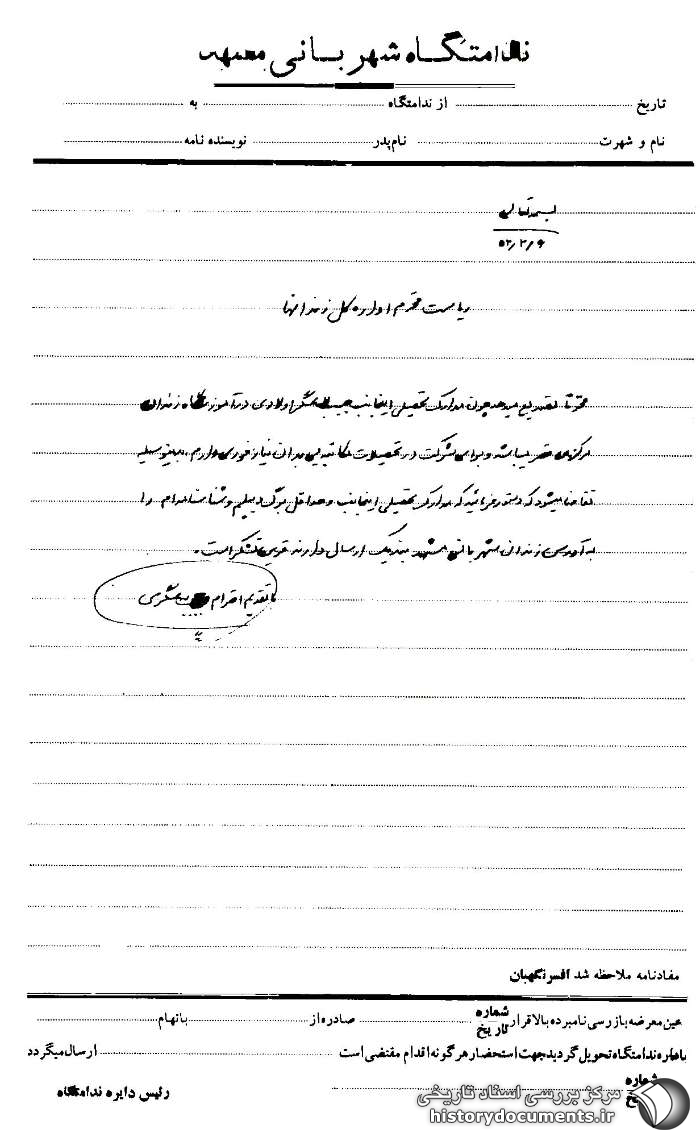 ندامتگاه شهربانی مشهد
تاریخ از ندامتگاه به
نام و شهرت نام پدر نویسنده نامه
بسمه تعالی
۵۲/۲/۶
ریاست محترم اداره کل زندانها
محترماً تصدیع میدهد چون مدارک تحصیلی اینجانب حبیب الله عسگراولادی در آموزشگاه زندان
مرکزی قصر میباشد و برای شرکت در تحصیلات مکاتبه‌یی بدان نیاز فوری دارم، بدینوسیله
تقاضا میشود که دستور فرمائید که مدارک تحصیلی اینجانب و حداقل برگ دیپلم و شناسنامه‌ام را
به آدرس زندان شهربانی مشهد بند یک ارسال دارند قرین تشکر است.
با تقدیم احترام عسگری
مفاد نامه ملاحظه شد افسر نگهبان
عین معرضه بازرسی نامبرده بالا قرار شماره تاریخ صادره از باتهام
باداره ندامتگاه تحویل گردید جهت استحضار هرگونه اقدام مقتضی است ارسال میگردد
شماره
رئیس دایره ندامتگاه
مرکز بررسی اسناد تاریخی
historydocuments.ir